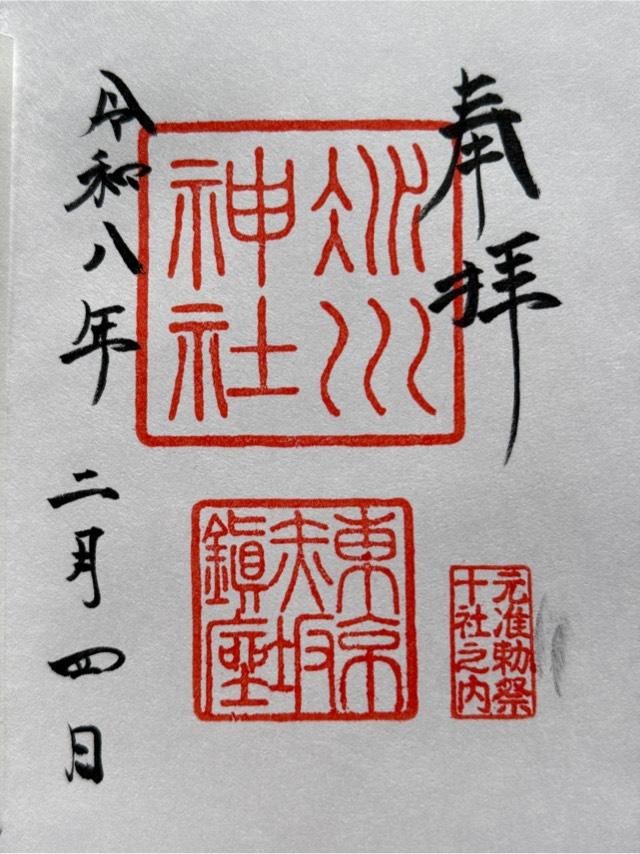 奉拝
氷川
神社
東京
赤坂
鎮座
元准勅祭
十社之内
令和八年
二月四日